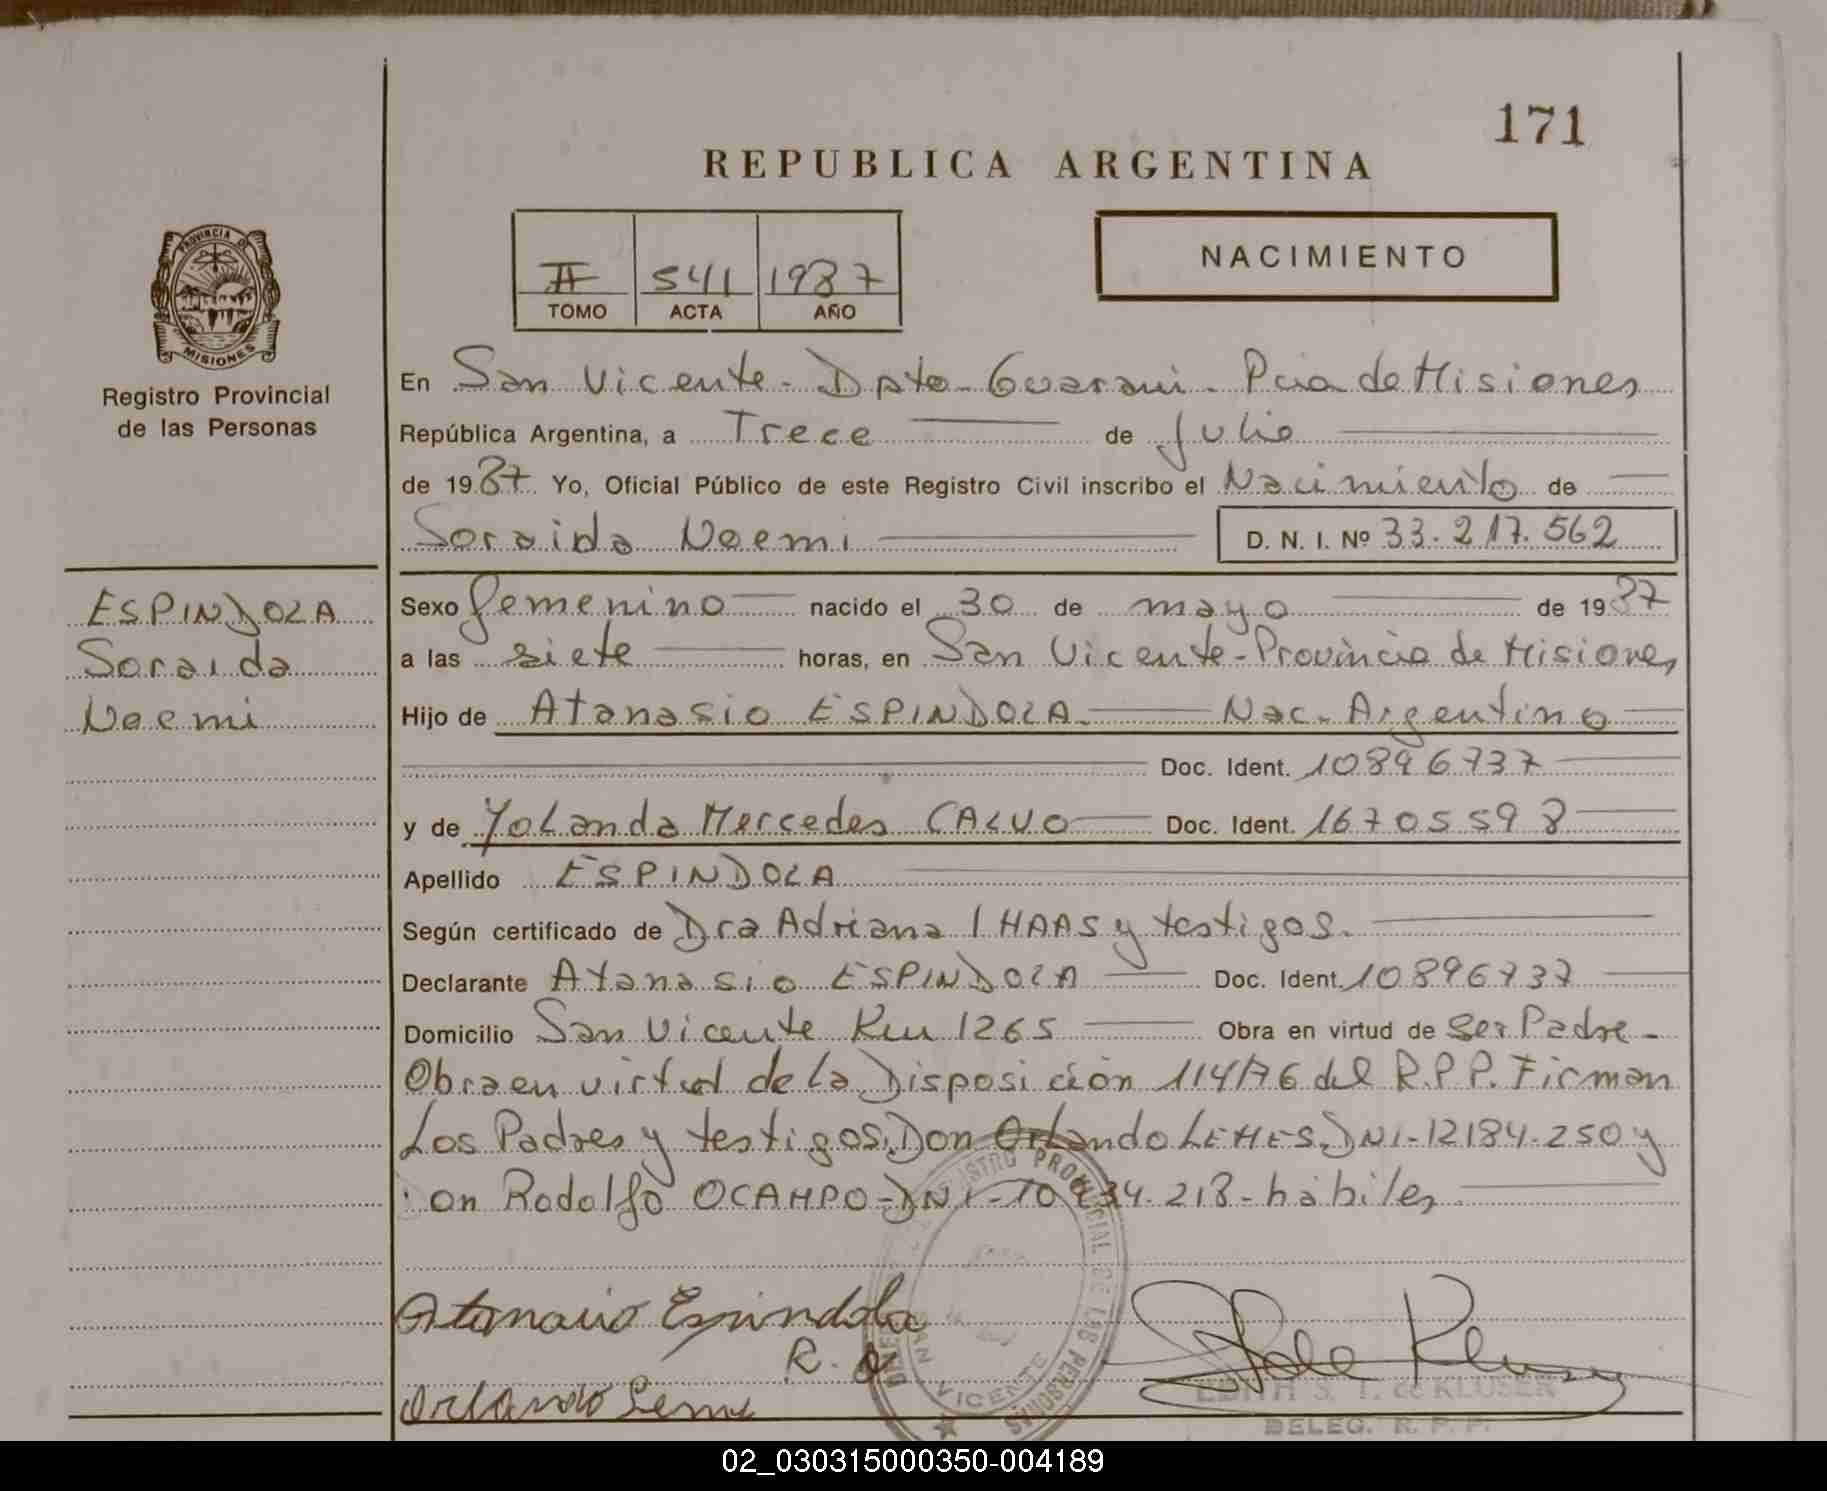 171
REPUBLICA ARGENTINA
PROVINCIA DE
MISIONES
Registro Provincial
de las Personas
II 541 1987
TOMO ACTA AÑO
NACIMIENTO
En San Vicente - Dpto - Guarani - Pcia de Misiones
República Argentina, a Trece de Julio
de 1987 Yo, Oficial Público de este Registro Civil inscribo el Nacimiento de
Soraida Noemi D. N. I. Nº 33.217.562
ESPINDOLA
Soraida
Noemi
Sexo femenino nacido el 30 de mayo de 1987
a las siete horas, en San Vicente - Provincia de Misiones
Hijo de Atanasio ESPINDOLA. Nac. Argentino
Doc. Ident. 10896737
y de Yolanda Mercedes CALVO Doc. Ident. 16705598
Apellido ESPINDOLA
Según certificado de Dra Adriana I HAAS y testigos.
Declarante Atanasio ESPINDOLA Doc. Ident. 10896737
Domicilio San Vicente Km 1265 Obra en virtud de ser Padre -
Obra en virtud de la Disposición 114/76 del R.P.P. Firman
Los Padres y testigos, Don Orlando LEMES, DNI - 12184.250 y
on Rodolfo OCAMPO - DNI - 10934.218 - hábiles
Atanasio Espindola
R. O
Orlando Leme
REGISTRO PROVINCIAL DE LAS PERSONAS
SAN VICENTE
EDITH S. T. de KLUSEN
DELEG. R. P. P.
02_030315000350-004189